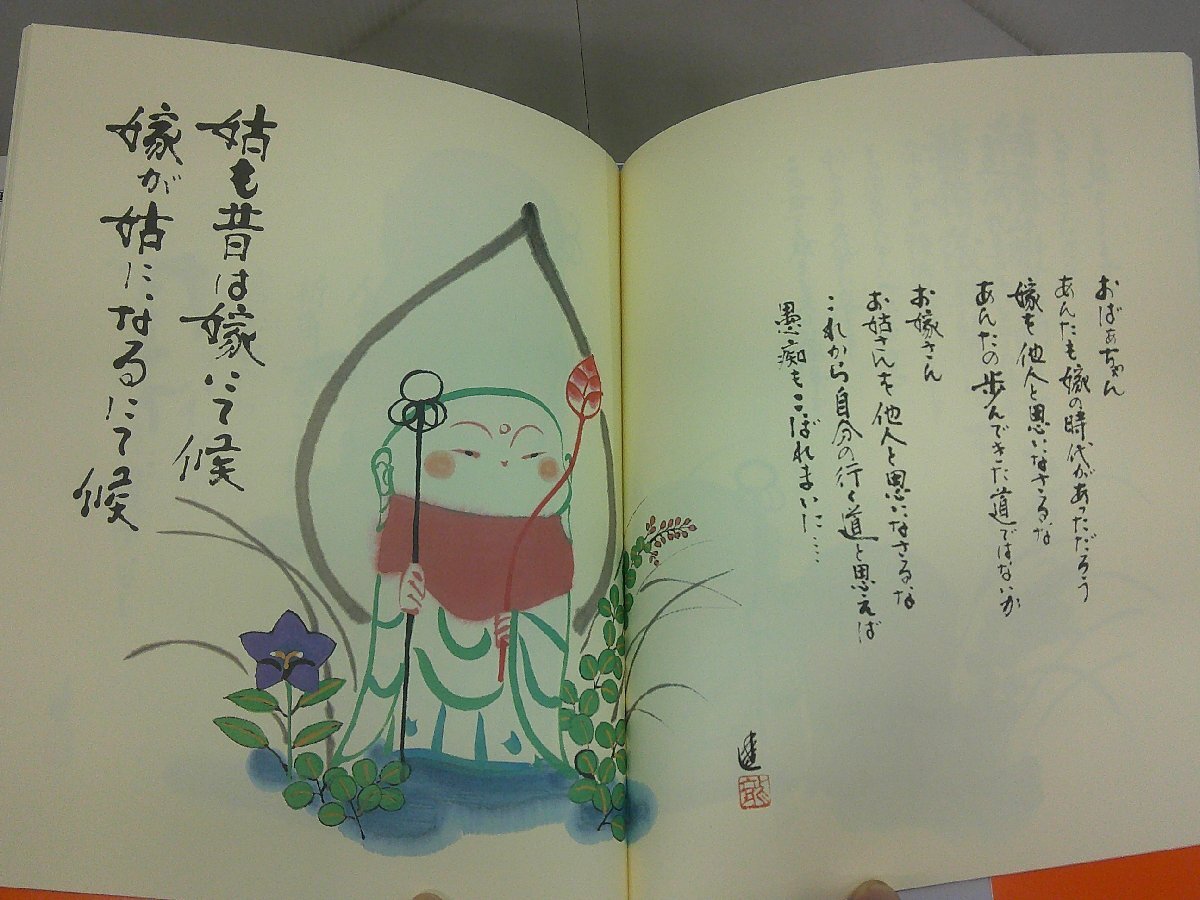 おばぁちゃん
あんたも嫁の時代があっただろう
嫁を他人と思いなさるな
あんたの歩んできた道ではないか
お嫁さん
お姑さんを他人と思いなさるな
これから自分の行く道と思えば
愚痴もこぼれまいに…
姑も昔は嫁にて候
嫁が姑になるにて候